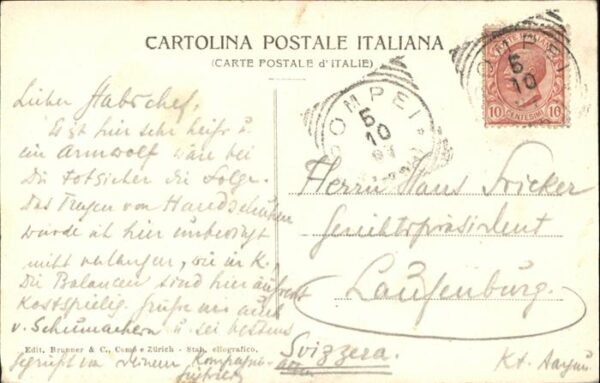 CARTOLINA POSTALE ITALIANA
(CARTE POSTALE d'ITALIE)
POMPEI
5
10
POMPEI
5
10
10 CENTESIMI 10
Lieber Stabschef,
Es ist hier sehr heiss u.
ein Armwolf wäre bei
Dir totsicher die Folge.
Das Tragen von Handschuhen
würde ich hier unbedingt
nicht verlangen, wie in K.
Die Balancen sind hier äusserst
kostspielig. Grüsse mir auch
v. Schumachern u. sei bestens
gegrüsst von Deinem
Herrn Hans Fricker
Gerichtspräsident
Laufenburg.
Svizzera.
Kt. Aargau
Edit. Brunner & C., Como e Zürich - Stab. eliografico.